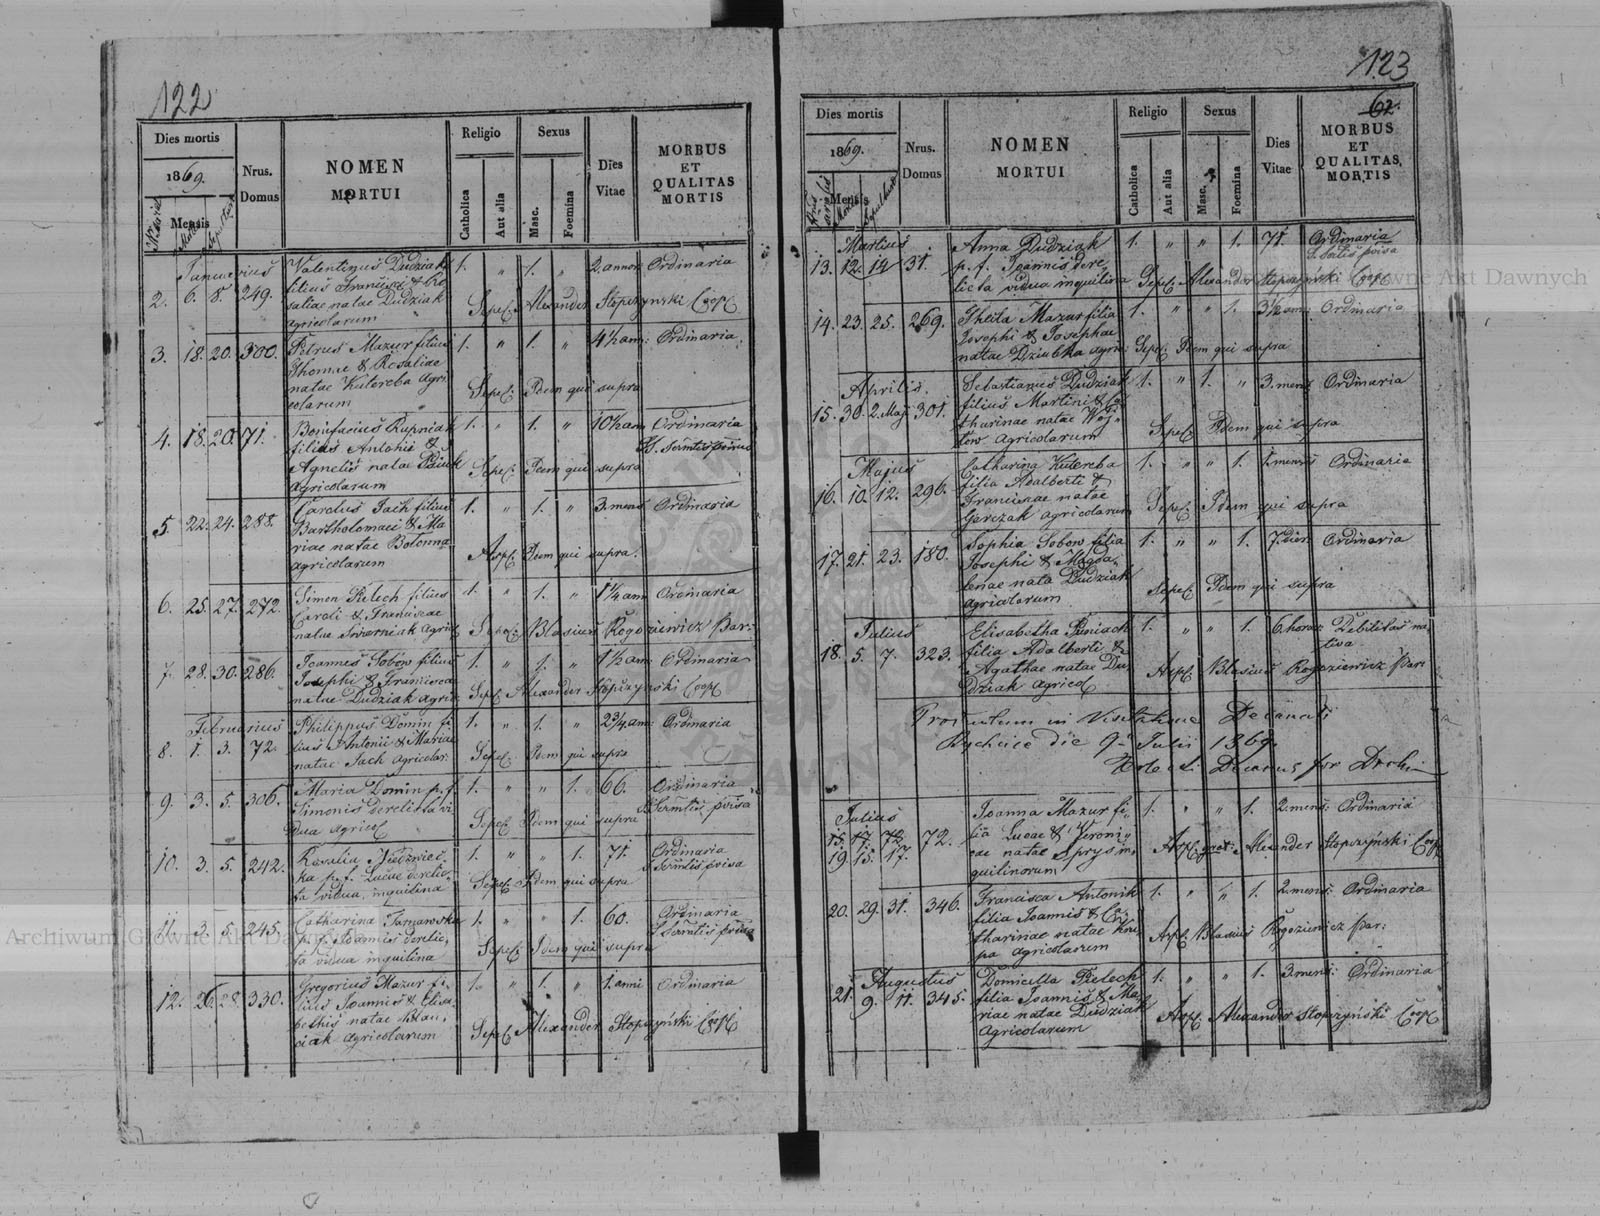 122
Dies mortis
1869.
Mensis
Nrus.
Domus
NOMEN
MORTUI
Religio
Catholica
Aut alia
Sexus
Masc.
Foemina
Dies
Vitae
MORBUS
ET
QUALITAS
MORTIS
Januarius
2. 6. 8. 249.
Valentinus Dudziak
filius Francisci & Ro
saliae natae Dudziak
agricolarum
1. " 1. " 2. annor. Ordinaria
Sepel. Alexander Stopczynski Coop.
3. 18. 20. 300.
Petrus Mazur filius
Thomae & Rosaliae
natae Kutereba agri
colarum
1. " 1. " 4½ an: Ordinaria
Sepel. Idem qui supra
4. 18. 20. 71.
Bonifacius Rupniak
filius Antonii &
Agnetis natae
agricolarum
1. " 1. " 10½ an Ordinaria
Sepel. Idem qui supra
5. 22. 24. 288.
Carolus Jach filius
Bartholomaei & Ma
riae natae
agricolarum
1. " 1. " 3. mens Ordinaria
Idem qui supra.
6. 25. 27. 272.
Simon Pielech filius
Caroli & Franciscae
natae
1. " 1. " 1¼ an Ordinaria
Sepel. Blasius Rogoziewicz Par:
7. 28. 30. 286.
Joannes Sobow filius
Josephi & Francisca
natae Dudziak agric
1. " 1. " 1½ an: Ordinaria
Sepel Alexander Stopczynski Coop
Februarius
8. 1. 3. 72.
Philippus Domin fi
lius Antonii & Mariae
natae Jach agricolar:
1. " 1. " 2¾ an: Ordinaria
Sepel. Idem qui supra
9. 3. 5. 306.
Maria Domin p. f.
Simonis derelicta vi
dua agricol
1. " " 1. 66. Ordinaria
Sepel. Idem qui supra
10. 3. 5. 242.
Rosalia
ka p. f. Lucae derelic
ta vidua inquilina
1. " " 1. 71. Ordinaria
Sepel. Idem qui supra
11. 3. 5. 245.
Catharina Tarnawska
p. f. Joannis derelic
ta vidua inquilina
1. " " 1. 60. Ordinaria
Sepel. Idem qui supra
12. 26. 28. 330.
Gregorius Mazur fi
lius Joannis & Elisa
bethis natae
ciak agricolarum
1. " 1. " 1. anni Ordinaria
Sepel. Alexander Stopczynski Coop
123
62.
Dies mortis
1869.
Mensis
Nrus.
Domus
NOMEN
MORTUI
Religio
Catholica
Aut alia
Sexus
Masc.
Foemina
Dies
Vitae
MORBUS
ET
QUALITAS
MORTIS
Martius
13. 12. 14. 31.
Anna Dudziak
p. f. Joannis dere
licta vidua inquilina
1. " " 1. 71. Ordinaria
Sepel. Alexander Stopczynski Coop
14. 23. 25. 269.
Mazur filia
Josephi & Josephae
natae Dziubka agric:
1. " " 1. 3½ an: Ordinaria
Sepel. Idem qui supra
Aprilis.
15. 30. 2. Maj. 301.
Sebastianus Dudziak
filius Martini & Ca
tharinae natae Woj
tow agricolarum
1. " 1. " 3. mens Ordinaria
Sepel. Idem qui supra
Majus
16. 10. 12. 296.
Catharina Kutereba
filia Adalberti &
Franciscae natae
Garczak agricolarum
1. " " 1. 1. mensis Ordinaria
Sepel. Idem qui supra
17. 21. 23. 180.
Sophia Sobow filia
Josephi & Magda
lenae nata Dudziak
agricolarum
1. " " 1. 7. dier. Ordinaria
Sepel. Idem qui supra
Julius
18. 5. 7. 323.
Elisabetha
filia Adalberti &
Agathae natae Du
dziak agricol
1. " " 1. 6. horar. Debilitas na
tiva
Blasius Rogoziewicz Par:
in Visitatione Decanali
die 9. Julii 1869.
Decanus
Julius
15. 17. 72.
19. 15. 17. 72.
Joanna Mazur fi
lia Lucae & Veroni
cae natae Sprys in
quilinorum
1. " " 1. 2. mens: Ordinaria
Alexander Stopczyński Coop
20. 29. 31. 346.
Francisca Antonik
filia Joannis & Ca
tharinae natae
pa agricolarum
1. " " 1. 2. mens: Ordinaria
Blasius Rogoziewicz Par:
Augustus
21. 9. 11. 345.
Domicella Pielech
filia Joannis & Ma
riae natae Dudziak
agricolarum
1. " " 1. 3. mens: Ordinaria
Alexander Stopczyński Coop
Archiwum Główne Akt Dawnych